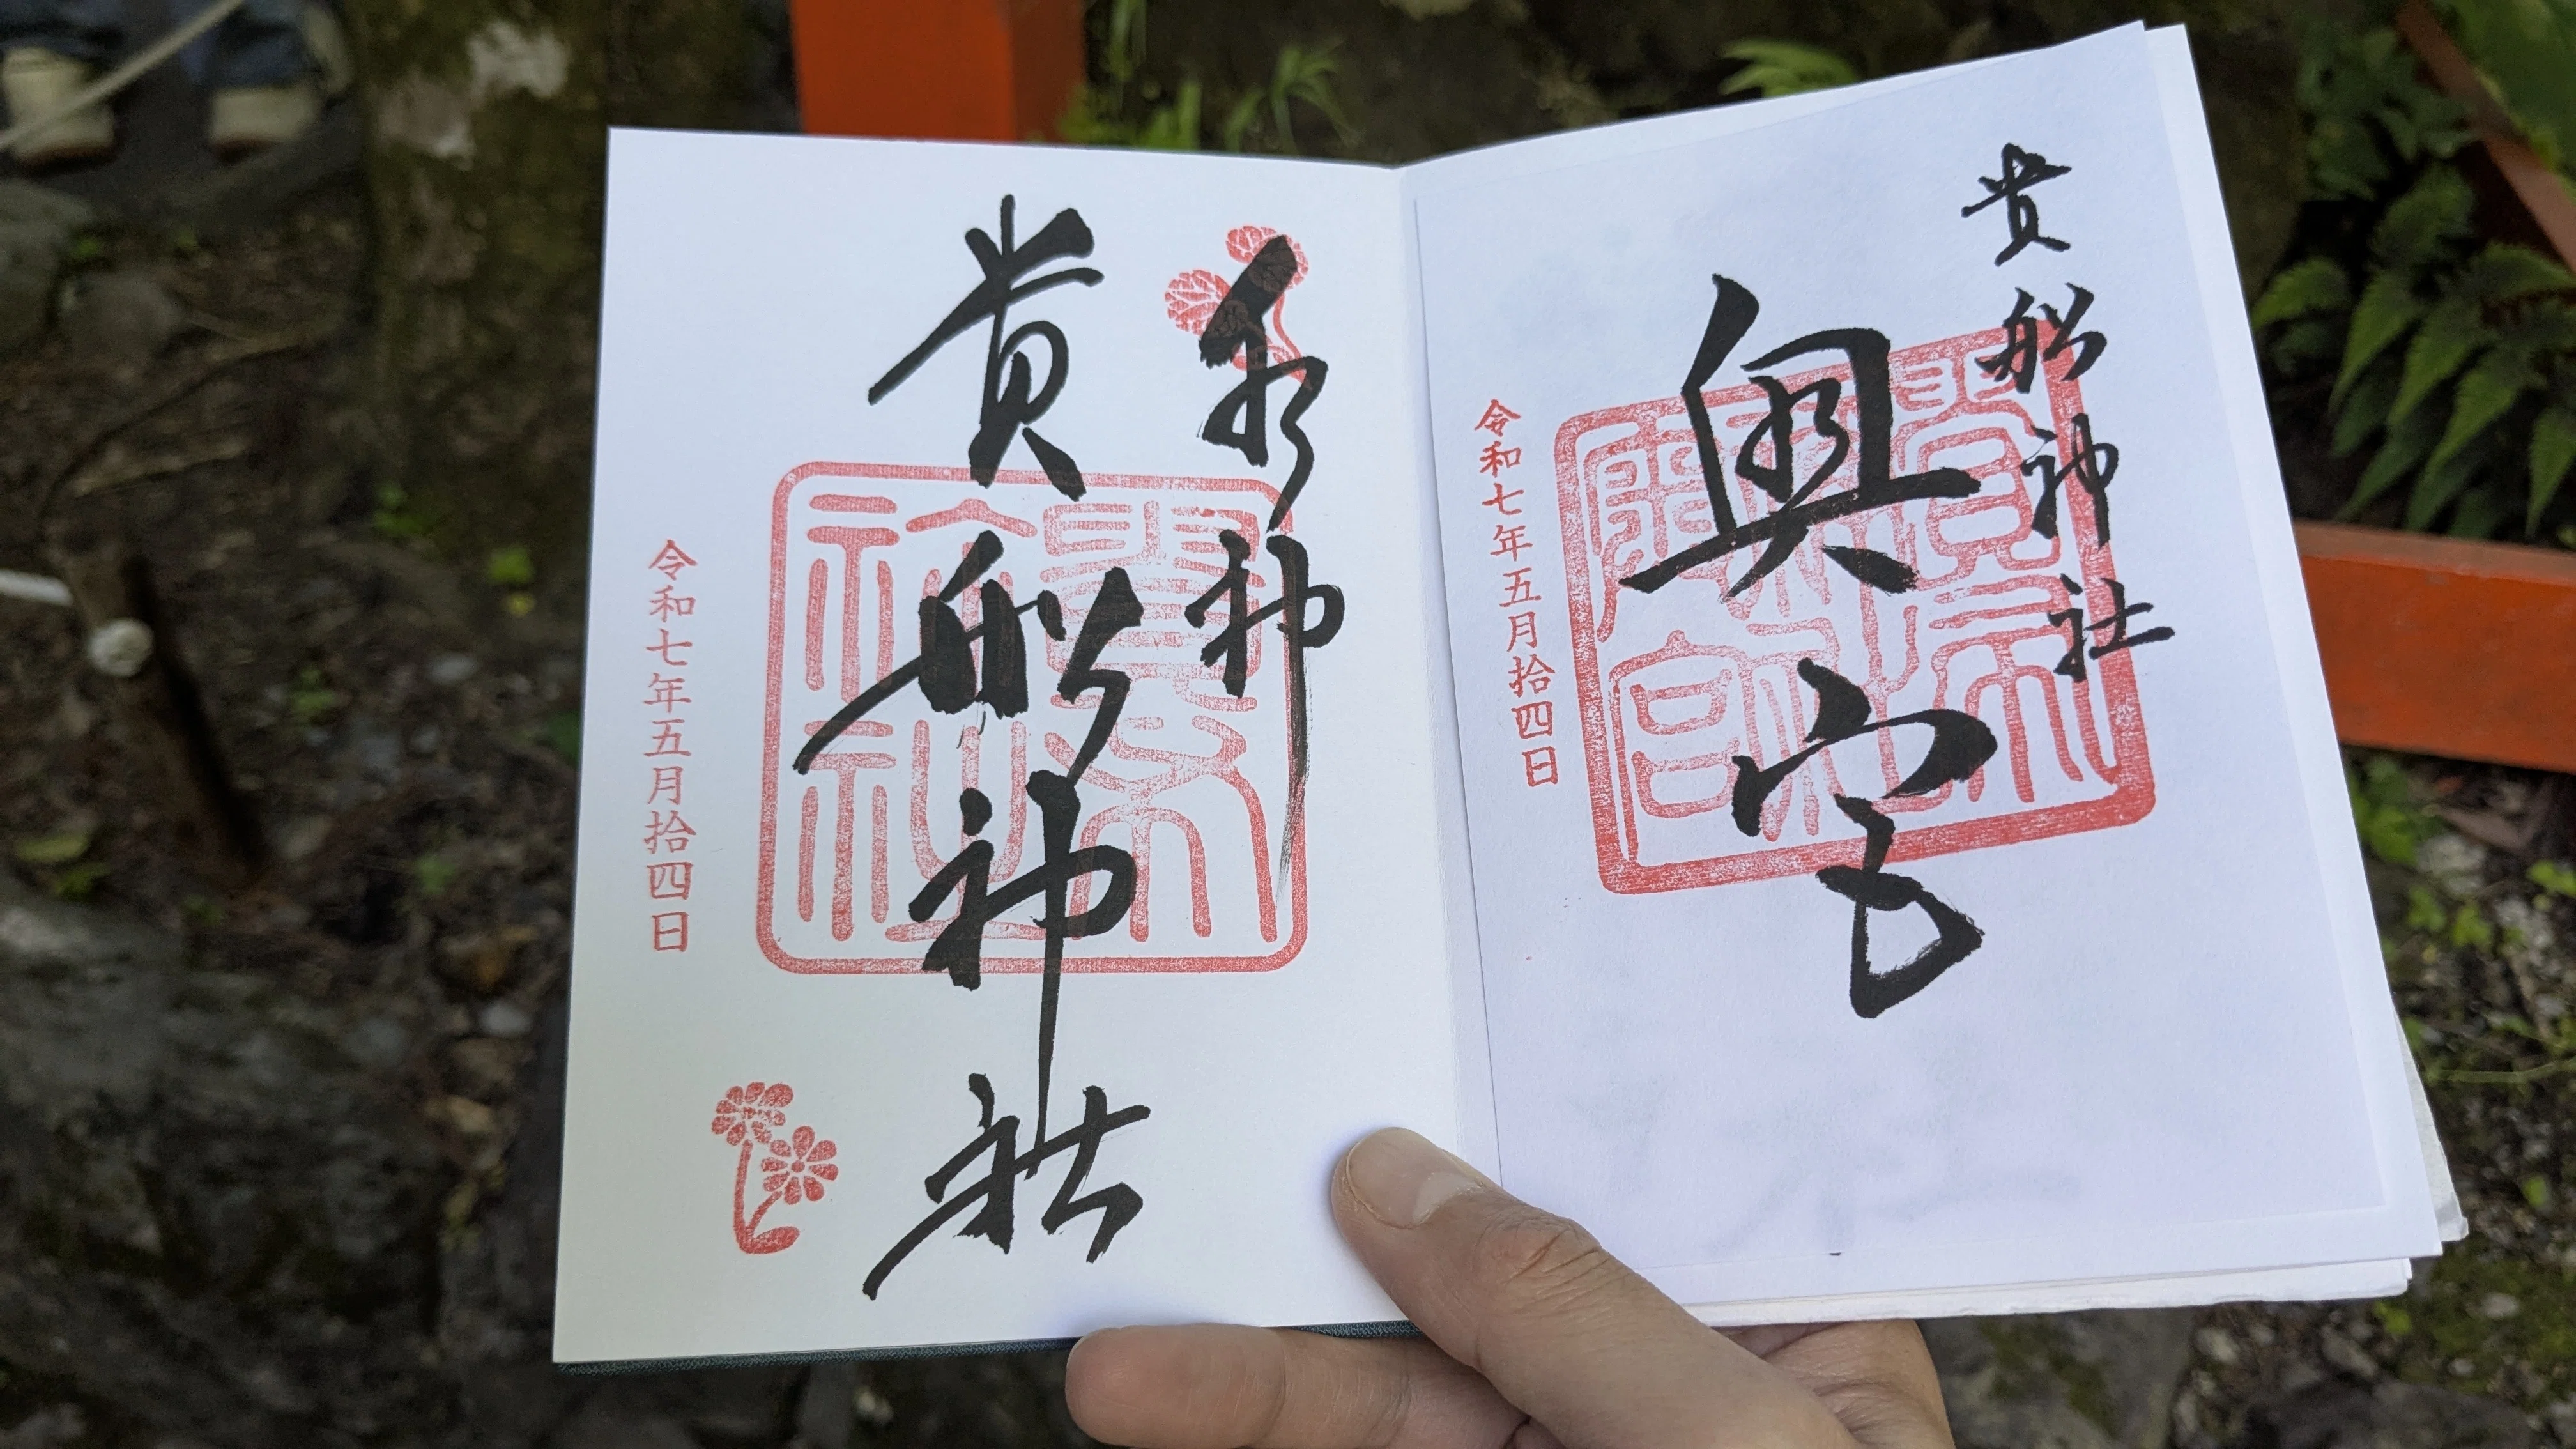 貴船神社
奥宮
令和七年五月拾四日
水神
貴船神社
令和七年五月拾四日